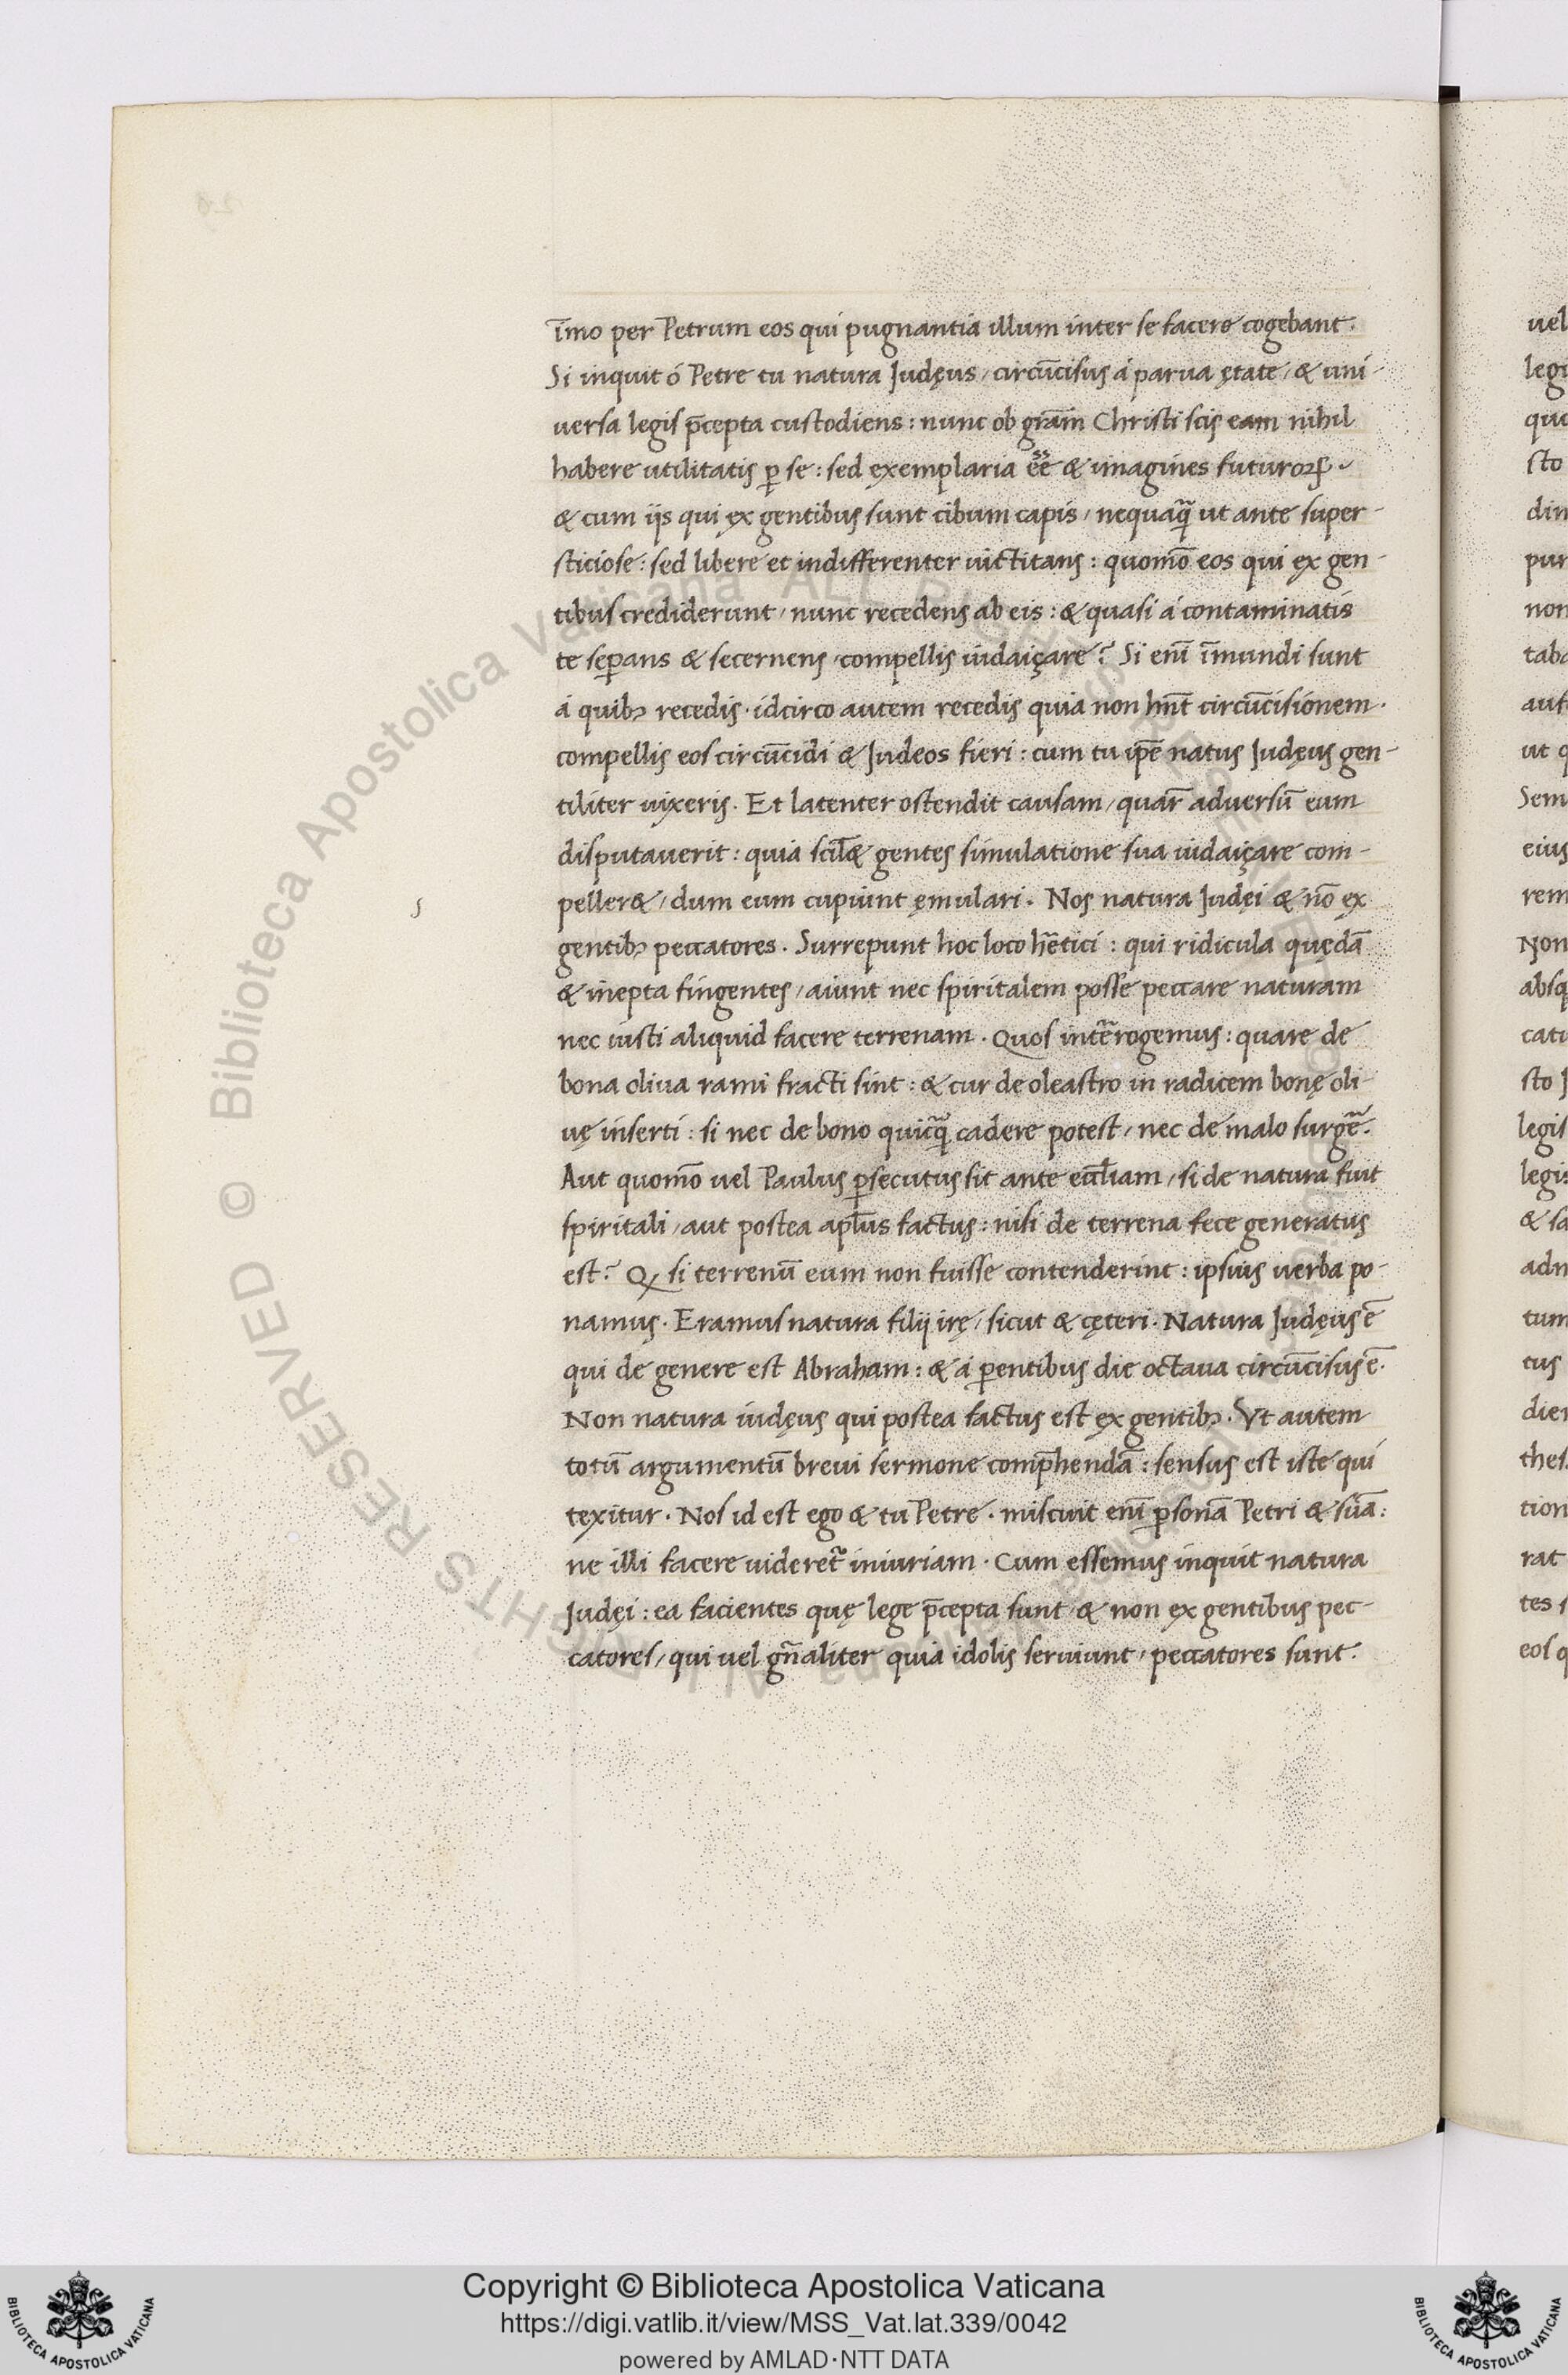 i̅mo per Petrum eos qui pugnantia illum inter se facere cogebant.
Si inquit ó Petre tu natura Judęus, circu̅cisus á parua ętate, & uni-
uersa legis p̅cepta custodiens: nunc ob gra̅m Christi scis eam nihil
habere utilitatis ꝑ se: sed exemplaria e̅e̅ & imagines futuroꝝ.
& cum ijs qui ex gentibus sunt cibum capis, nequaq̃ ut ante super-
sticiose: sed libere et indifferenter uictitans: quomo̅ eos qui ex gen-
tibus crediderunt, nunc recedens ab eis: & quasi á contaminatis
te seꝑans & secernens, compellis iudaiçare? Si eni̅ i̅mundi sunt
á quibꝫ recedis. idcirco autem recedis quia non hn̅t circu̅cisionem.
compellis eos circu̅cidi & Judeos fieri: cum tu ip̅e natus Judęus gen-
tiliter uixeris. Et latenter ostendit causam, quar̅ aduersu̅ eum
disputauerit: quia scil̅& gentes simulatione sua iudaiçare com-
peller&, dum eum cupiunt ęmulari. Nos natura Judęi & no̅ ex
gentibꝫ peccatores. Surrepunt hoc loco hętici: qui ridicula quęda̅
& inepta fingentes, aiunt nec spiritalem posse peccare naturam
nec iusti aliquid facere terrenam. Quos inte̅rogemus: quare de
bona oliua rami fracti sint: & cur de oleastro in radicem bonę oli-
uę inserti: si nec de bono quicq̃ cadere potest, nec de malo surge̅.
Aut quomo̅ uel Paulus ꝑsecutus sit ante eccl̅iam, si de natura fuit
spiritali, aut postea apl̅us factus: nisi de terrena fece generatus
est? Q̶ si terrenu̅ eum non fuisse contenderint: ipsius uerba po-
namus. Eramus natura filij irę, sicut & cęteri. Natura Judęus e̅
qui de genere est Abraham: & á ꝑentibus die octaua circu̅cisus e̅.
Non natura iudęus qui postea factus est ex gentibꝫ. Vt autem
totu̅ argumentu̅ breui sermone comp̅henda̅: sensus est iste qui
texitur. Nos id est ego & tu Petre. miscuit eni̅ ꝑsona̅ Petri & sua̅:
ne illi facere uideret᷑ iniuriam. Cum essemus inquit natura
Judęi: ea facientes quę lege p̅cepta sunt, & non ex gentibus pec-
catores, qui uel gn̅aliter quia idolis seruiunt, peccatores sunt.
© Biblioteca Apostolica Vaticana ALL RIGHTS RESERVED
Copyright © Biblioteca Apostolica Vaticana
https://digi.vatlib.it/view/MSS_Vat.lat.339/0042
powered by AMLAD·NTT DATA
BIBLIOTECA APOSTOLICA VATICANA
BIBLIOTECA APOSTOLICA VATICANA